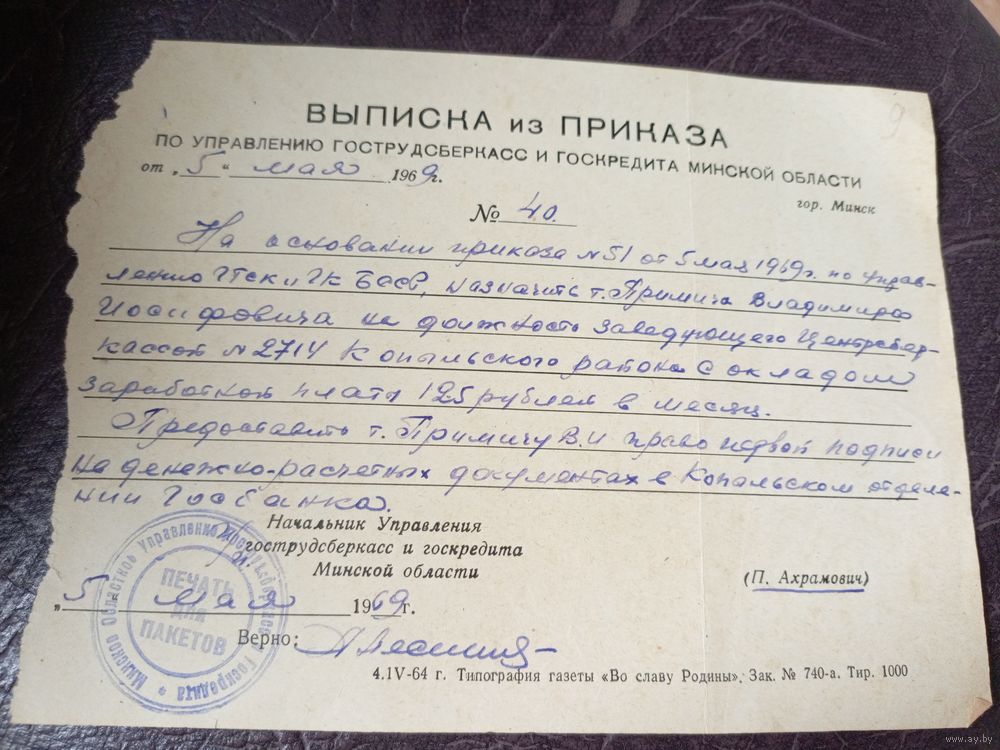 9
ВЫПИСКА из ПРИКАЗА
ПО УПРАВЛЕНИЮ ГОСТРУДСБЕРКАСС И ГОСКРЕДИТА МИНСКОЙ ОБЛАСТИ
от „5“ мая 1969г.
гор. Минск
№ 40.
На основании приказа №51 от 5 мая 1969г. по управ-
лению ГТСК и ГК БССР, назначить т. Примича Владимира
Иосифовича на должность заведующего Центросбер-
кассой №2714 Копыльского района с окладом
заработной платы 125 рублей в месяц.
Предоставить т. Примичу В.И право первой подписи
на денежно-расчетных документах в Копыльском отделе-
нии Госбанка.
Начальник Управления
гострудсберкасс и госкредита
Минской области
(П. Ахрамович)
„5“ мая 1969г.
Верно:
4.IV-64 г. Типография газеты «Во славу Родины». Зак. № 740-а. Тир. 1000
Минское Областное Управление Гострудсберкасс и Госкредита
ПЕЧАТЬ
ДЛЯ
ПАКЕТОВ
www.ay.by